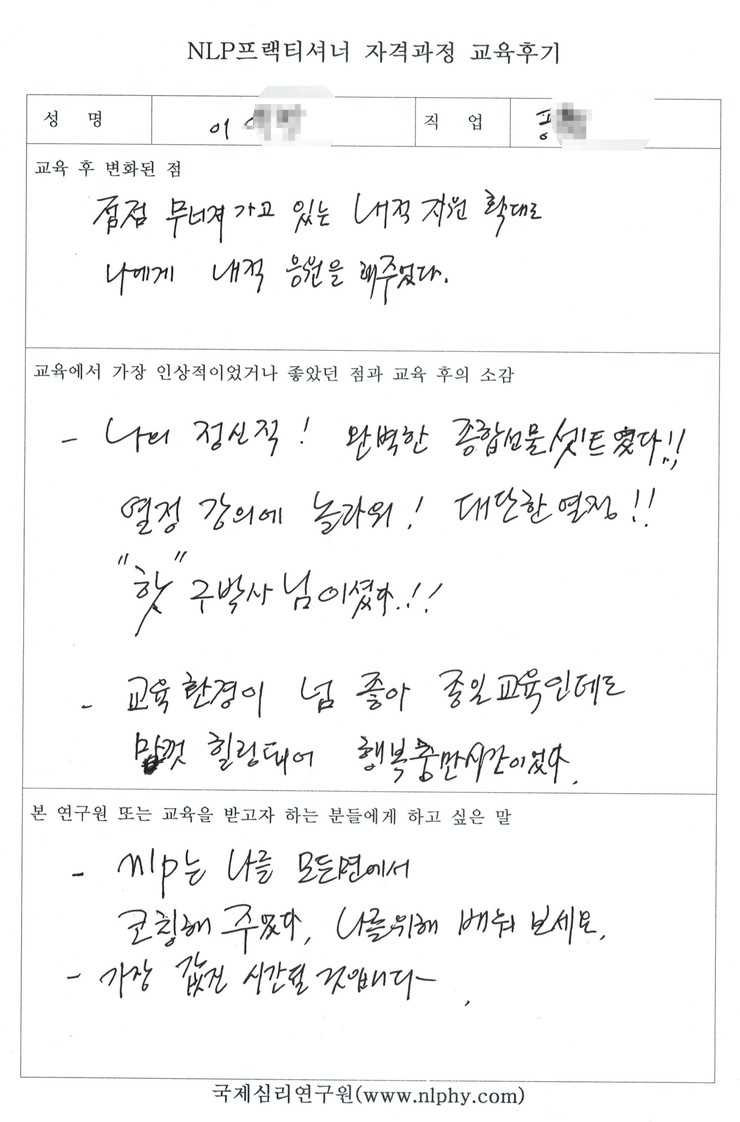 NLP프랙티셔너 자격과정 교육후기
성 명 이
직 업
교육 후 변화된 점
점점 무너져 가고 있는 내적 자원 확대로
나에게 내적 응원을 해주었다.
교육에서 가장 인상적이었거나 좋았던 점과 교육 후의 소감
- 나의 정신적! 완벽한 종합선물셋트였다!!
열정 강의에 놀라워! 대단한 열정!!
"핫" 구박사님이셨다.!!
- 교육환경이 넘 좋아 종일교육인데도
맘껏 힐링되어 행복충만시간이었다.
본 연구원 또는 교육을 받고자 하는 분들에게 하고 싶은 말
- nlp는 나를 모든면에서
코칭해 주었다, 나를위해 배워 보세요.
- 가장 값진 시간될 것입니다~.
국제심리연구원(www.nlphy.com)